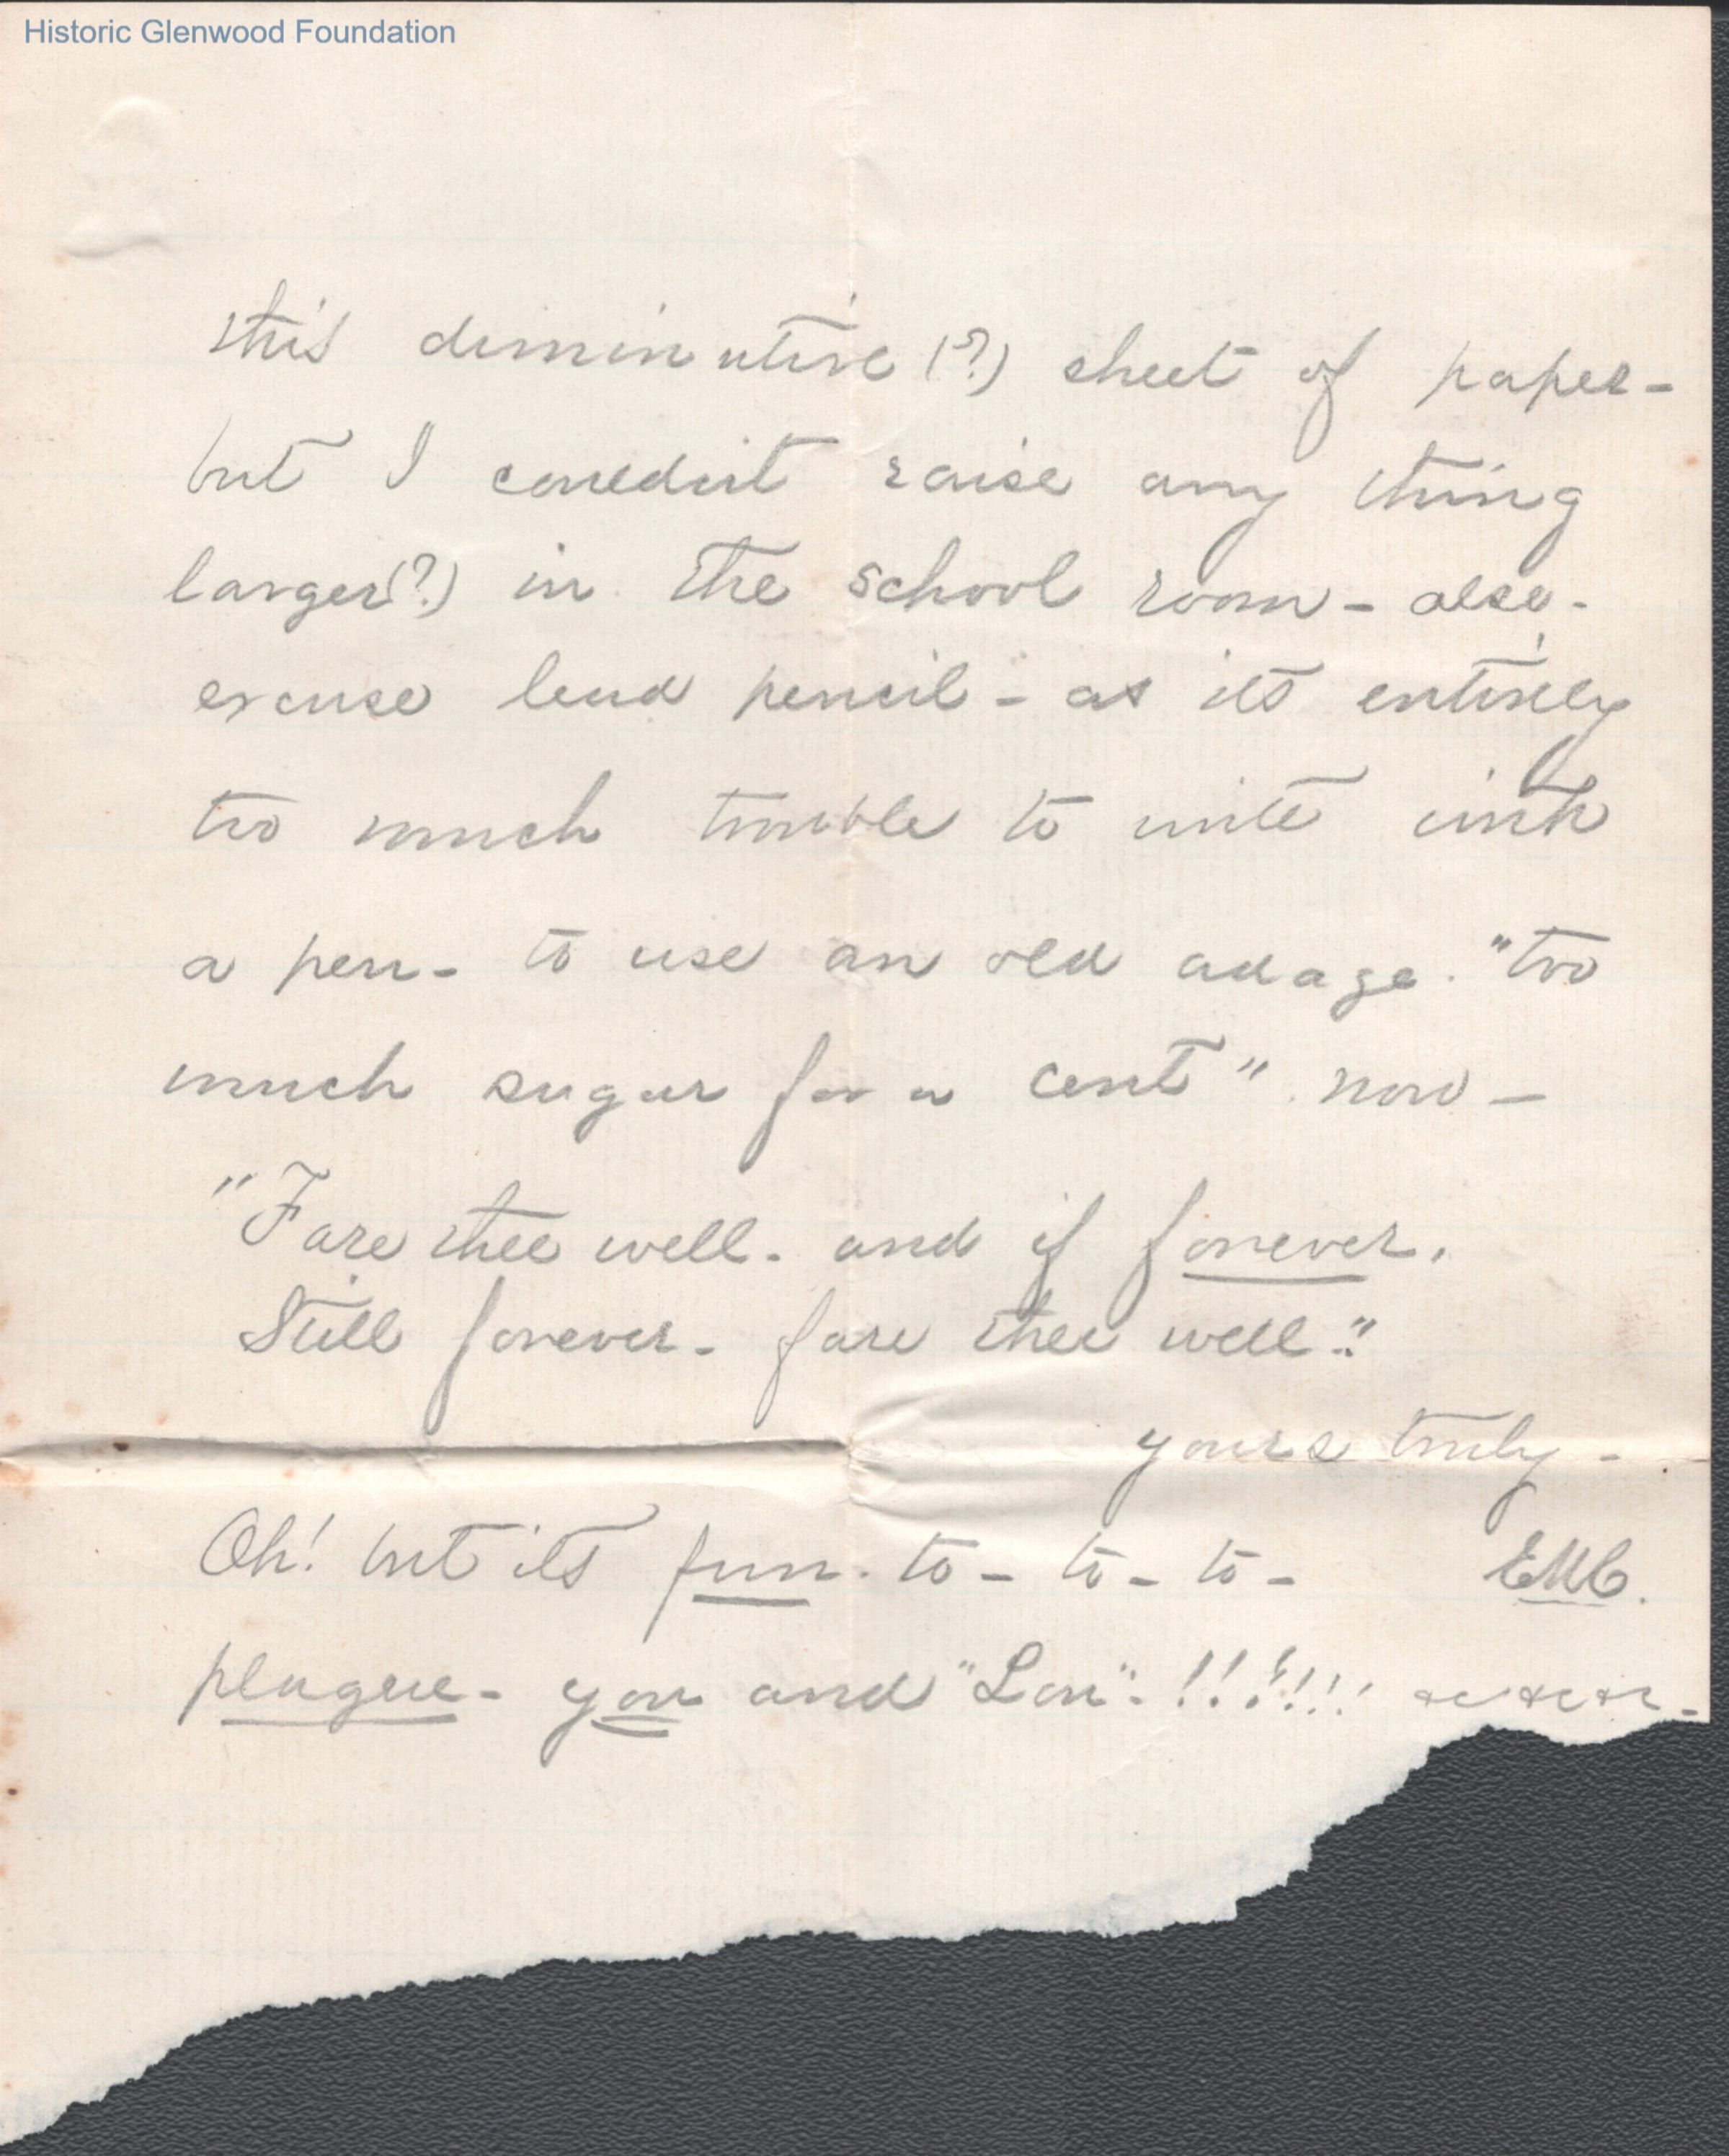 Historic Glenwood Foundation
this diminutive (?) sheet of paper -
but I couldn't raise any thing
larger (?) in the school room - also -
excuse lead pencil - as its entirely
too much trouble to write with
a pen - to use an old adage. "too
much sugar for a cent" now -
"Fare thee well - and if forever.
Still forever - fare thee well."
yours truly -
Oh! but its fun - to - to - to - EMC.
plague - you and "Lon" - !!!!!!!